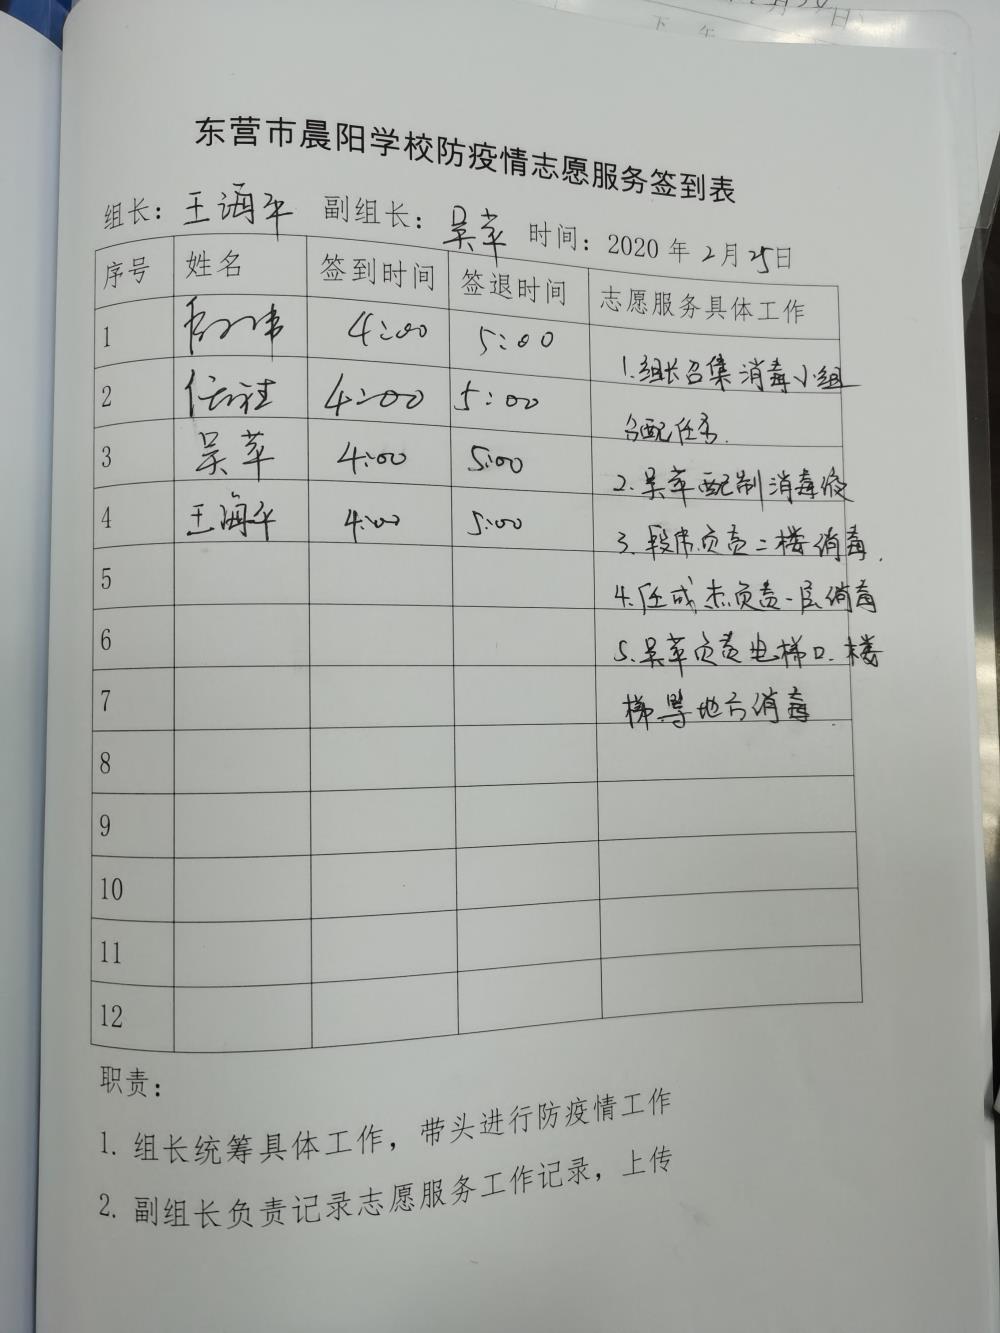 月 日
下 午
东营市晨阳学校防疫情志愿服务签到表
组长：王海平 副组长：吴苹 时间：2020年2月25日
序号 姓名 签到时间 签退时间 志愿服务具体工作
1 4:00 5:00 1.组长召集消毒小组
2 4:00 5:00 分配任务.
3 吴苹 4:00 5:00 2.吴苹配制消毒液
4 王海平 4:00 5:00 3.段伟负责二楼消毒.
5 4.任成杰负责一层消毒
6 5.吴苹负责电梯口.楼
7 梯等地方消毒.
8
9
10
11
12
职责：
1. 组长统筹具体工作，带头进行防疫情工作
2. 副组长负责记录志愿服务工作记录，上传